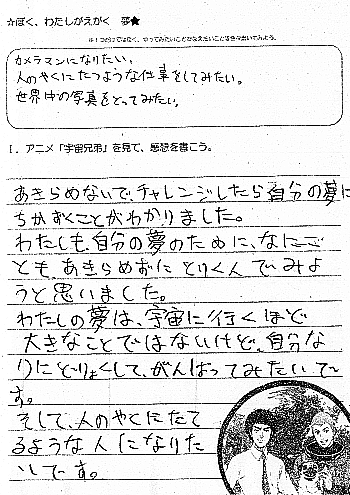 ☆ぼく、わたしがえがく 夢★
カメラマンになりたい。
人のやくにたつような仕事をしてみたい。
世界中の写真をとってみたい。
1. アニメ「宇宙兄弟」を見て、感想を書こう。
あきらめないで、チャレンジしたら自分の夢に
ちかずくことがわかりました。
わたしも、自分の夢のために、なにご
とも、あきらめずに とりくんでみよ
うと思いました。
わたしの夢は、宇宙に行くほど
大きなことではないけど、自分な
りにどりょくして、がんばってみたいで
す。
そして、人のやくにたて
るような人になりた
いです。